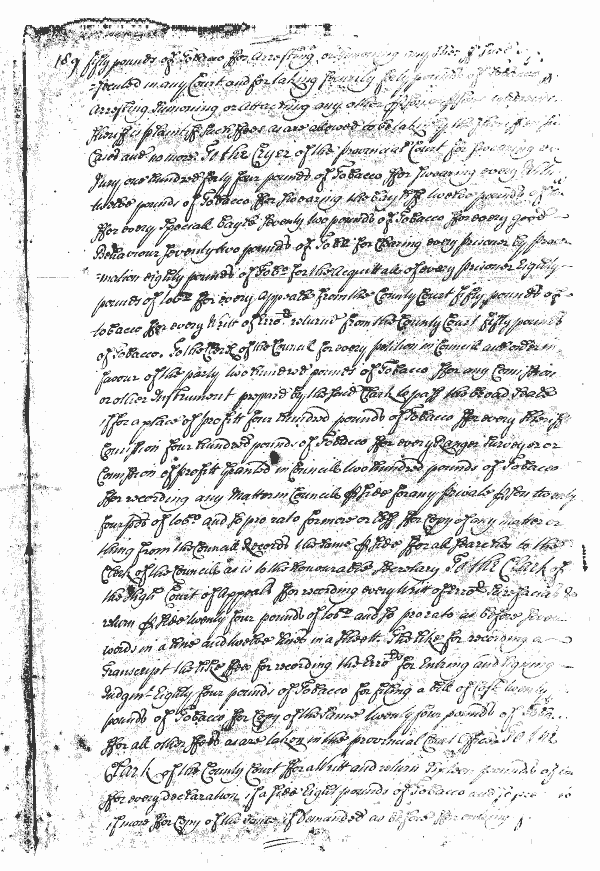 189 fifty pounds of Tobacco ffor Arresting or Sumoning any
in any Court and for taking Security fifty pounds of Tobacco
Arresting Sumoning or Attaching any other
such ffees as are allowed to be taken by the Sheriff in
Cases and no more To the Cryer of the provincial Court for Swearing ev
Jury one hundred fifty four pounds of Tobacco ffor Swearing every
twelve pounds of Tobacco ffor Swearing the Bayliff twelve pounds of
ffor every Speciall Bayle Seventy two pounds of Tobacco ffor every good
Behaviour Seventy two pounds of Tobb. ffor Clearing every prisoner by procla
mation eighty pounds of Tobo. for the Acquittall of every prisoner Eighty
pounds of tobo. ffor every Appeale from the County Court fifty pounds of
tobacco ffor every Writt of Erro. returne from the County Court fifty pounds
of Tobacco. To the Clerk of the Councill for every petition in Councill and order in
favour of the party two hundred pounds of Tobacco ffor any Comission
or other Instrument prepared by the said Clerk to pass the broad Seale
if for a place of profitt four hundred pounds of Tobacco ffor every Sheriffs
Comission four hundred pounds of Tobacco ffor every Ranger Surveyor or
Comission of profitt granted in Councill two hundred pounds of Tobacco
ffor recording any Matter in Councill p side for any private pson twenty
four pds of tobo. and so pro rato for more or less ffor Copy of any matter or
thing from the Councill Records the same p side ffor all searches to the
Clerk of the Councill as is to the honourable Secretary To the Clerk of
the high Court of Appeals ffor recording every Writt of Erro.
return p side twenty four pounds of tobo. and so pro rato as before seven
words in a line and twelve lines in a side The like for recording a
Transcript the like ffee for recording the Erro. for Entring and signing
Judgmt. Eighty four pounds of Tobacco for filing a bill of Cost twenty
pounds of Tobacco ffor Copy of the same twenty four pounds of Toba
ffor all other ffees as are taken in the provincial Court Office To the
Clark of the County Court ffor a Writt and return fifteen pounds of
ffor every declaration if a side Eight pounds of Tobacco and so pro
if more ffor Copy of the same if demanded as before ffor